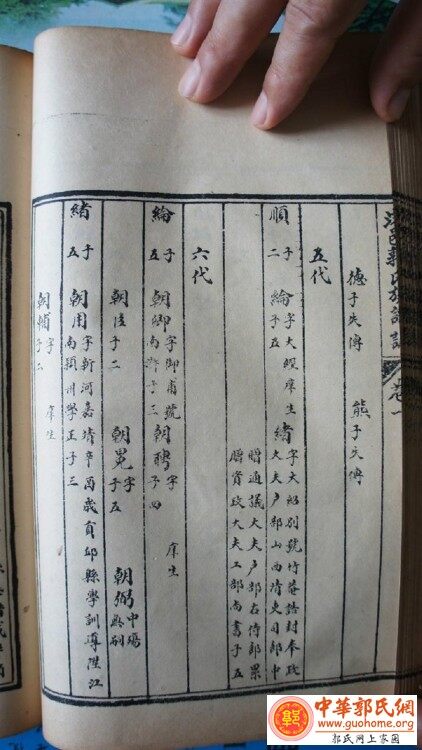 氏族譜
卷一
德子失傳 熊子失傳
五代
順 子二 綸 字大經庠生
子五 緒 字大紹別號竹菴誥封奉政
大夫戶部山西清吏司郎中
贈通議大夫戶部右侍郎累
贈資政大夫工部尚書子五
六代
綸 子五 朝卿 字御甫號
南野子三 朝聘 字 庠生
子四
朝陛 子二 朝冕 字
子五 朝弼 中殤
無嗣
緒 子五 朝用 字新河嘉靖辛酉歲貢邱縣學訓導陞江
南潁州學正子三
朝輔 字 庠生
子二
中華郭氏網
www.guohome.org
郭氏网上家园